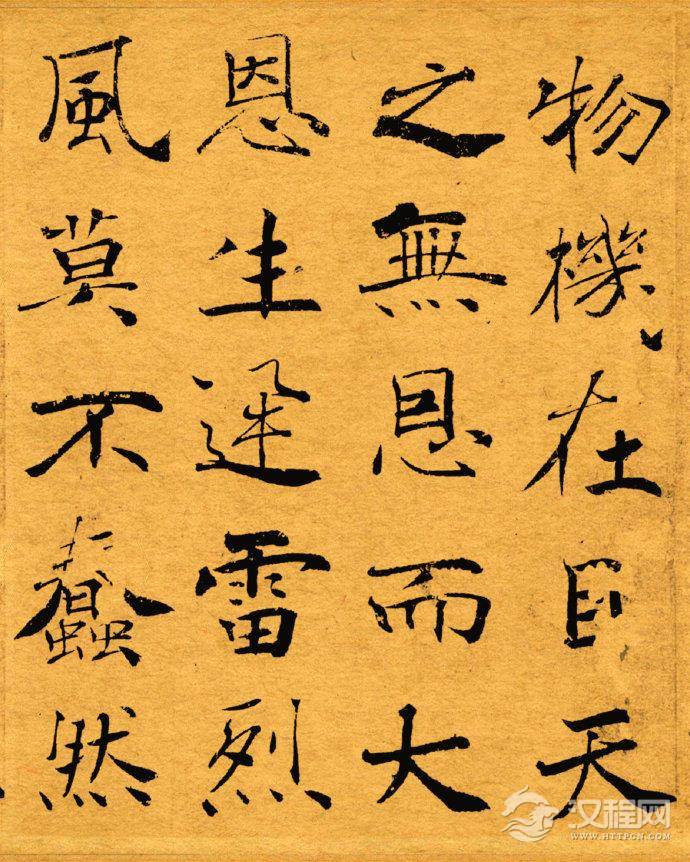 物機在目天
之無恩而大
恩生迅雷烈
風莫不蠢然
汉程网
WWW.HTTPCN.COM